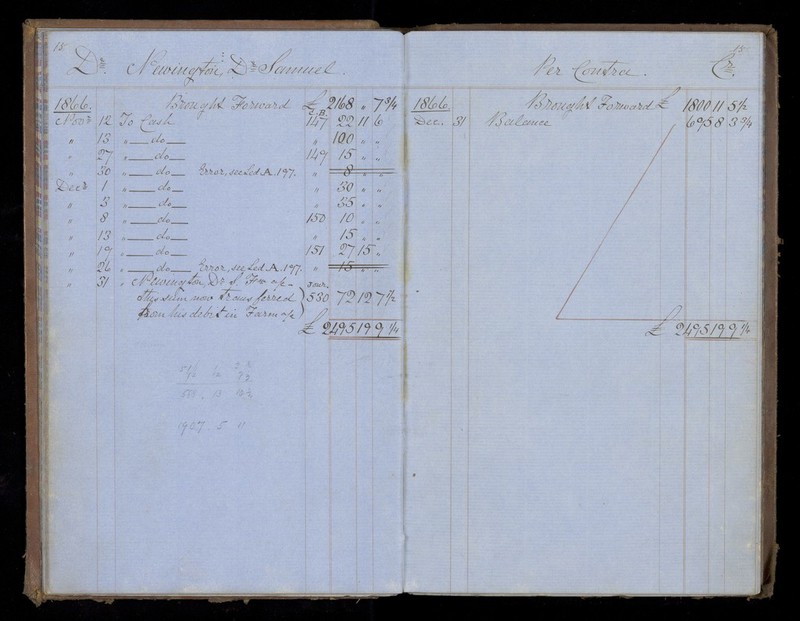 15
Dr. Newington, Dr. Samuel.
1866. Brought Forward £ 2168 " 7 3/4
C.B.
Novr 12 To Cash 147 22 11 6
" 13 " do " 100 " "
" 27 " do 149 15 " "
" 30 " do Error, see Led. A. 197. " 8 " "
Decr 1 " do " 30 " "
" 3 " do " 35 " "
" 8 " do 150 10 " "
" 13 " do " 15 " "
" 19 " do 151 27 15 "
" 26 " do Error, see Led. A. 197. " 15 " "
" 31 " Newington, Dr. S. Fm a/c Jour.
this sum now transferred 530 72 12 7 1/2
from his debit in Farm a/c
£ 2495 19 9 1/4
1907 5 11
15
Per Contra. Cr.
1866 Brought Forward £ 1800 11 5 1/2
Dec. 31 Balance 695 8 3 3/4
£ 2495 19 9 1/4